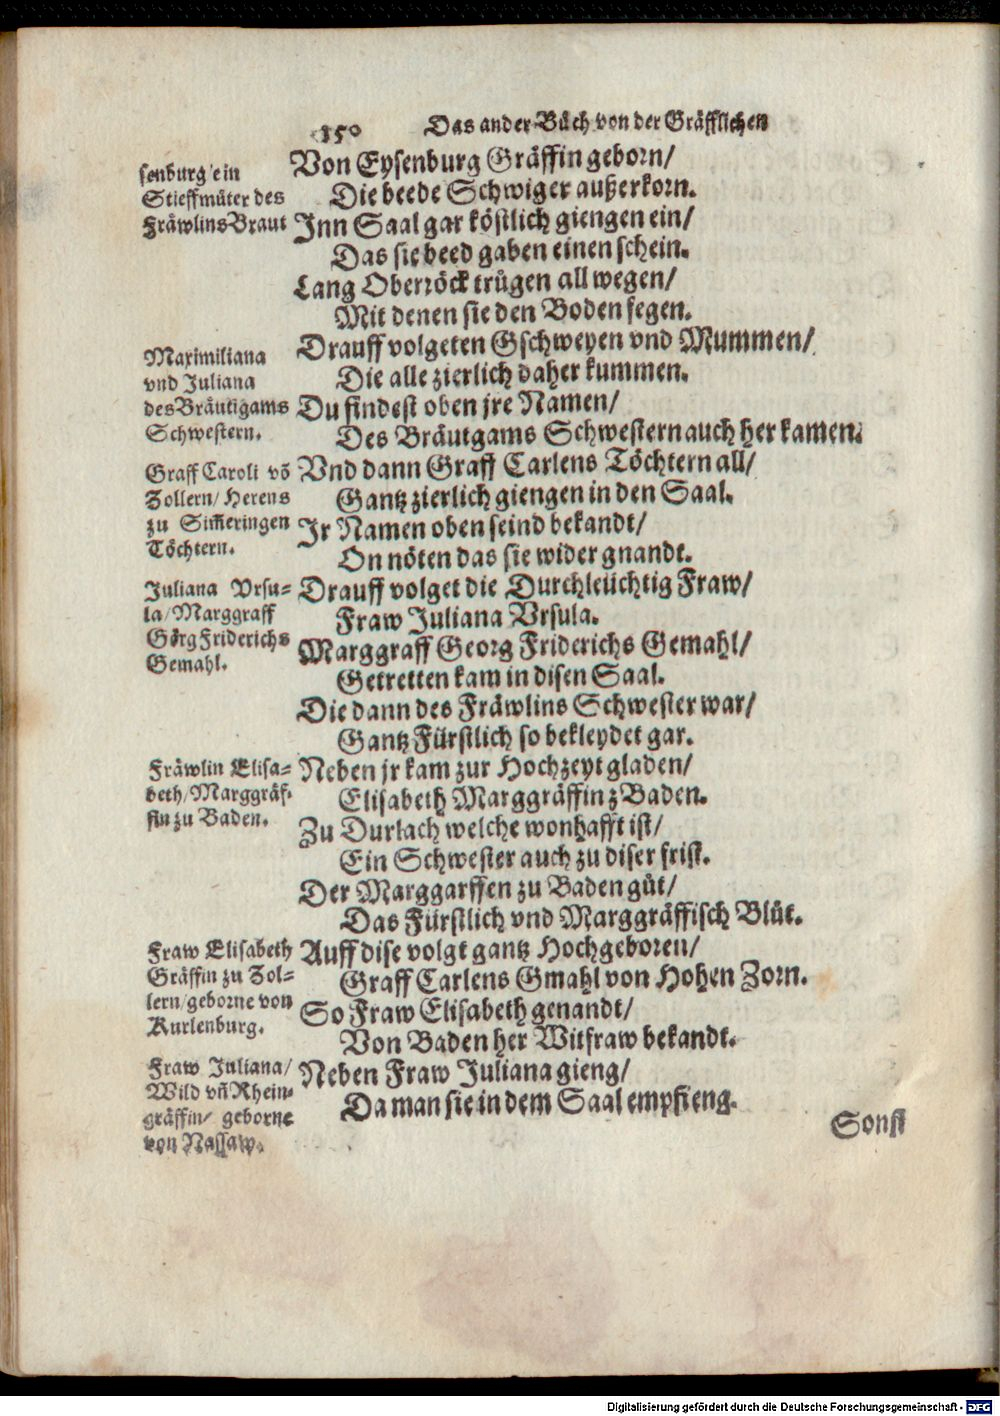 150 Das ander Bůch von der Gräfflichen
senburg ein
Stieffmůter des
Fräwlins Braut
Von Eysenburg Gräffin geborn/
Die beede Schwiger außerkorn.
Inn Saal gar köstlich giengen ein/
Das sie beed gaben einen schein.
Lang Oberröck trůgen all wegen/
Mit denen sie den Boden fegen.
Drauff volgeten Gschweyen vnd Mummen/
Die alle zierlich daher kummen.
Maximiliana
vnd Juliana
des Bräutigams
Schwestern.
Du findest oben jre Namen/
Des Bräutgams Schwestern auch her kamen.
Graff Caroli võ
Zollern/ Herens
zu Sim̃eringen
Töchtern.
Vnd dann Graff Carlens Töchtern all/
Gantz zierlich giengen in den Saal.
Ir Namen oben seind bekandt/
On nöten das sie wider gnandt.
Juliana Vrsu-
la/ Marggraff
Görg Friderichs
Gemahl.
Drauff volget die Durchleüchtig Fraw/
Fraw Juliana Vrsula.
Marggraff Georg Friderichs Gemahl/
Getretten kam in disen Saal.
Die dann des Fräwlins Schwester war/
Gantz Fürstlich so bekleydet gar.
Fräwlin Elisa-
beth/ Marggräf-
fin zu Baden.
Neben jr kam zur Hochzeyt gladen/
Elisabeth Marggräffin z Baden.
Zu Durlach welche wonhafft ist/
Ein Schwester auch zu diser frist.
Der Marggarffen zu Baden gůt/
Das Fürstlich vnd Marggräffisch Blůt.
Fraw Elisabeth
Gräffin zu Zol-
lern/ geborne von
Kurlenburg.
Auff dise volgt gantz Hochgeboren/
Graff Carlens Gmahl von Hohen Zorn.
So Fraw Elisabeth genandt/
Von Baden her Witfraw bekandt.
Fraw Juliana/
Wild vñ Rhein-
gräffin/ geborne
von Nassaw.
Neben Fraw Juliana gieng/
Da man sie in dem Saal empfieng.
Sonst
Digitalisierung gefördert durch die Deutsche Forschungsgemeinschaft - DFG